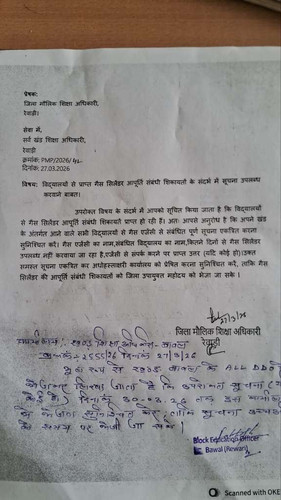 प्रेषक:
जिला मौलिक शिक्षा अधिकारी,
रेवाड़ी।
सेवा में,
सर्व खंड शिक्षा अधिकारी,
रेवाड़ी
क्रमांक: PMP/2026/
दिनांक: 27.03.2026
विषय: विद्यालयों से प्राप्त गैस सिलेंडर आपूर्ति संबंधी शिकायतों के संदर्भ में सूचना उपलब्ध
करवाने बाबत।
उपरोक्त विषय के संदर्भ में आपको सूचित किया जाता है कि विद्यालयों
से गैस सिलेंडर आपूर्ति संबंधी शिकायतें प्राप्त हो रही हैं। अतः आपसे अनुरोध है कि अपने खंड
के अंतर्गत आने वाले सभी विद्यालयों से गैस एजेंसी से संबंधित पूर्ण सूचना एकत्रित करना
सुनिश्चित करें। गैस एजेंसी का नाम,संबंधित विद्यालय का नाम,कितने दिनों से गैस सिलेंडर
उपलब्ध नहीं करवाया जा रहा है,एजेंसी से संपर्क करने पर प्राप्त उत्तर (यदि कोई हो)।उक्त
समस्त सूचना एकत्रित कर अधोहस्ताक्षरी कार्यालय को प्रेषित करना सुनिश्चित करें, ताकि गैस
सिलेंडर की आपूर्ति संबंधी शिकायतों को जिला उपायुक्त महोदय को भेजा जा सके।
27/3/26
जिला मौलिक शिक्षा अधिकारी
रेवाड़ी
कार्यालय: खण्ड शिक्षा अधिकारी बावल
क्रमांक:- 2555/26 दिनांक 27/3/26
खण्ड बावल के ALL DDO
किया जाता है कि उपरोक्त सूचना
दिनांक 30-03-26 तक इस कार्यालय
को भेजना सुनिश्चित करें, ताकि सूचना
को समय पर भेजी जा सके।
Block Education Officer
Bawal (Rewari)
Scanned with OKE